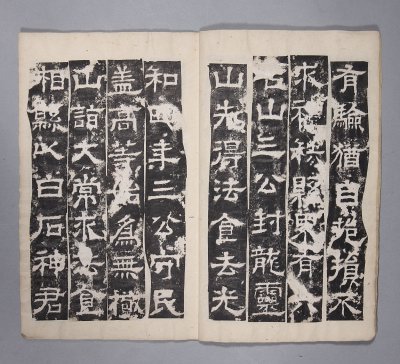 有驗猶自挹損不
求禮秩縣界有六
名山三公封龍靈
山先得法食去光
和四年三公守民
蓋高等始為無極
山詣大常求法食
相縣以白石神君